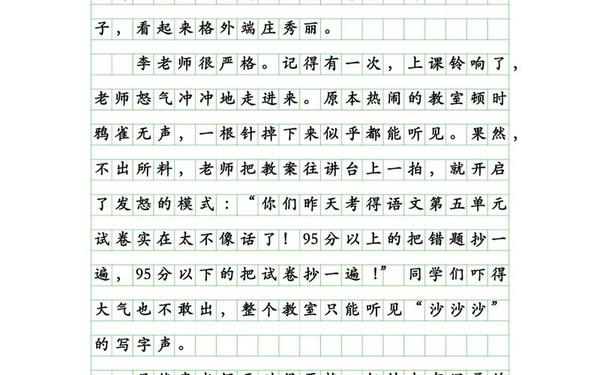 子，看起来格外端庄秀丽。
李老师很严格。记得有一次，上课铃响了，
老师怒气冲冲地走进来。原本热闹的教室顿时
鸦雀无声，一根针掉下来似乎都能听见。果然，
不出所料，老师把教案往讲台上一拍，就开启
了发怒的模式：“你们昨天考得语文第五单元
试卷实在太不像话了！95分以上的把错题抄一
遍，95分以下的把试卷抄一遍！” 同学们吓得
大气也不敢出，整个教室只能听见“沙沙沙”
的写字声。